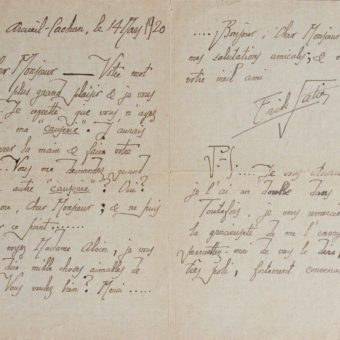 Arcueil-Cachan, le 14 Mars 1920
cher Monsieur ___ Votre mot
plus grand plaisir & je vous
Je regrette que vous n'ayez
ma "causerie". J'aurais
serrer la main & faire votre
.... Vous me demandez quand
autre "causerie"? Oui?
, cher Monsieur; & ne puis
ce point .......
voyez Madame Alvin, je vous
dire mille choses aimables de
Vous voulez bien? Merci .....
.... Bonjour, cher Monsieur
mes salutations amicales; &
votre vieil ami
Erik Satie
P.S. .... Je vous
je l'ai en double dans
Toutefois, je vous remercie
la gracieuseté de me l'envoyer
permettez-moi de vous le dire
très poli, fortement convenable